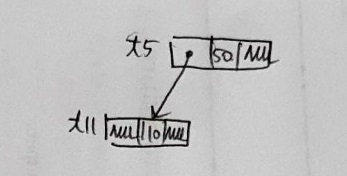 t5 50 nu
t11 nu 10 nu